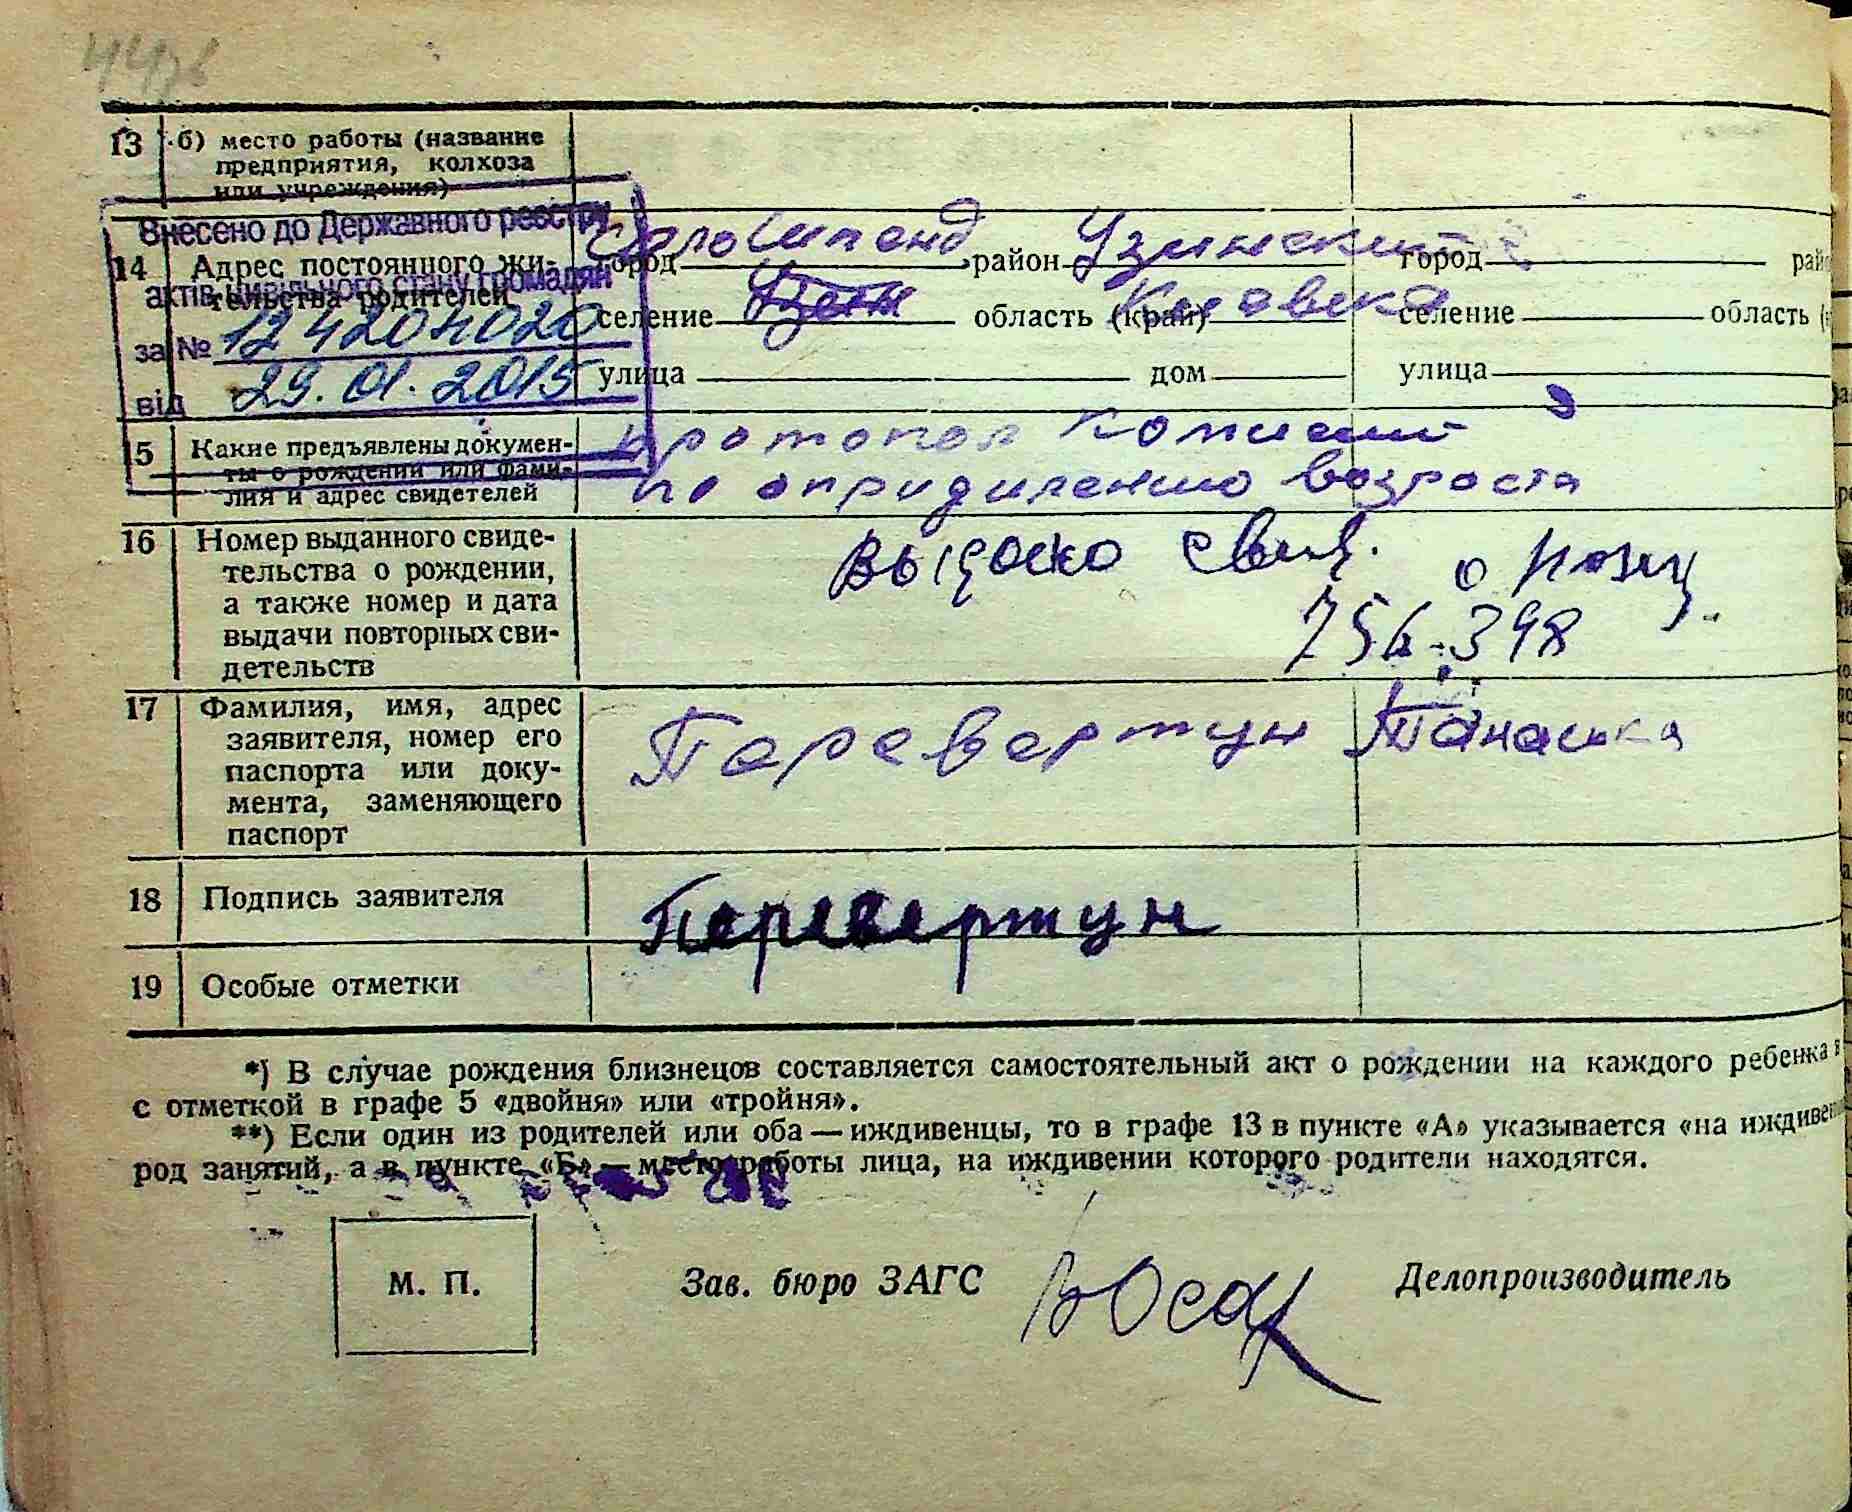 13 б) место работы (название
предприятия, колхоза
или учреждения)
Внесено до Державного реєстру
актів цивільного стану громадян
за № 12 4204020
від 29.01.2015
14 Адрес постоянного жи-
тельства родителей
Село Шпенд район Узинский город рай
город
селение область (край) Киевска селение область (
улица дом улица
15 Какие предъявлены докумен-
ты о рождении или фами-
лия и адрес свидетелей
протокол Комисии
по опридилению возроста
16 Номер выданного свиде-
тельства о рождении,
а также номер и дата
выдачи повторных сви-
детельств
Выдано свид. о рожд.
756.398
17 Фамилия, имя, адрес
заявителя, номер его
паспорта или доку-
мента, заменяющего
паспорт
Перевертун Танаска
18 Подпись заявителя
Перевертун
19 Особые отметки
*) В случае рождения близнецов составляется самостоятельный акт о рождении на каждого ребенка в
с отметкой в графе 5 «двойня» или «тройня».
**) Если один из родителей или оба — иждивенцы, то в графе 13 в пункте «А» указывается «на иждивен
род занятий, а в пункте «Б» — место работы лица, на иждивении которого родители находятся.
М. П. Зав. бюро ЗАГС Делопроизводитель